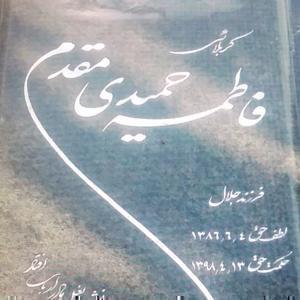 کربلائی
فاطمه حمیدی مقدم
فرزند جلال
لطف حق ۱۳۸۶٫۶٫۴
حکمت حق ۱۳۹۸٫۴٫۱۳